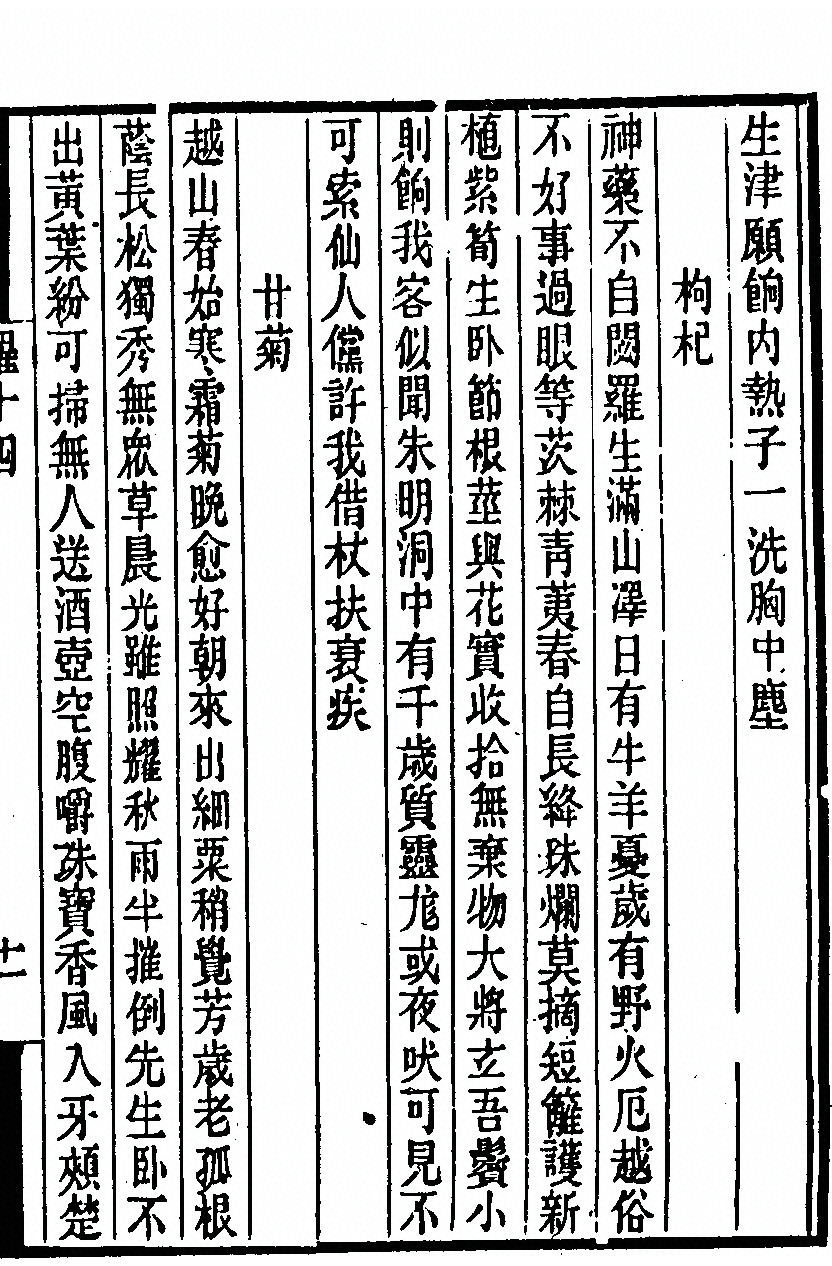 生津願餉内熱子一洗胸中塵
枸杞
神藥不自閟羅生滿山澤日有牛羊憂歲有野火厄越俗
不好事過眼等茨棘青荑春自長絳珠爛莫摘短籬護新
植紫筍生卧節根莖與花實收拾無棄物大將玄吾鬢小
則餉我客似聞朱明洞中有千歲質靈尨或夜吠可見不
可索仙人儻許我借杖扶衰疾
甘菊
越山春始寒霜菊晚愈好朝來出細粟稍覺芳歲老孤根
蔭長松獨秀無眾草晨光雖照耀秋雨半摧倒先生卧不
出黃葉紛可掃無人送酒壺空腹嚼珠寶香風入牙頰楚
十四
十一